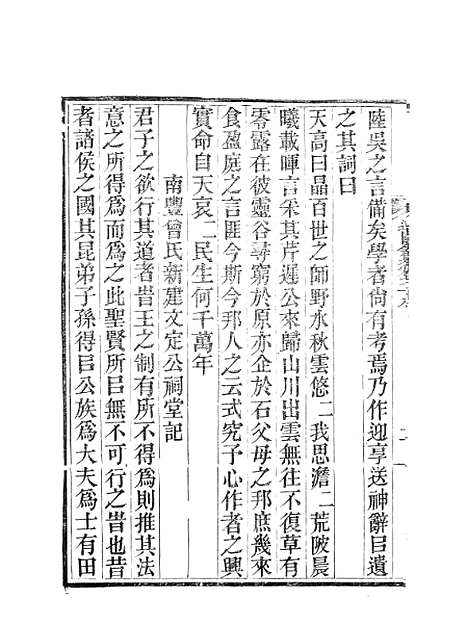 陸吳之言備矣學者尙有考焉乃作迎享送神辭㠯遺
之其詞曰
天高日晶百世之師野水秋雲悠〻我思澹〻荒陂晨
曦載暉言采其芹遲公來歸山川出雲無往不復草有
零露在彼靈谷尋窮於原亦企於石父母之邦庶幾來
食盈庭之言匪今斯今邦人之云式究予心作者之興
實命自天哀〻民生何千萬年
南豐曾氏新建文定公祠堂記
君子之欲行其道者昔王之制有所不得爲則推其法
意之所得爲而爲之此聖賢所㠯無不可行之昔也昔
者諸侯之國其昆弟子孫得㠯公族爲大夫爲士有田